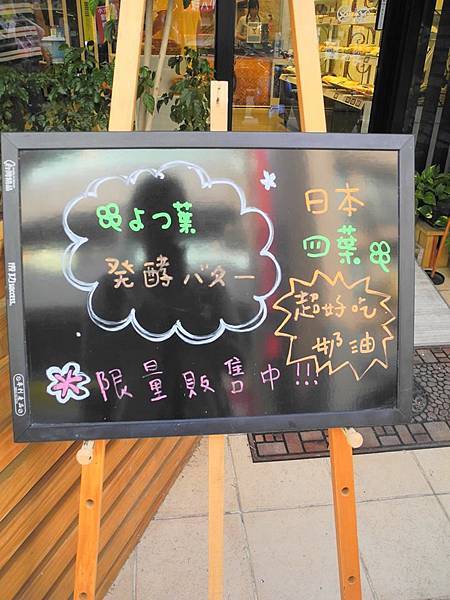 よつ葉
発酵バター
日本
四葉
超好吃
奶油
限量販售中!!!